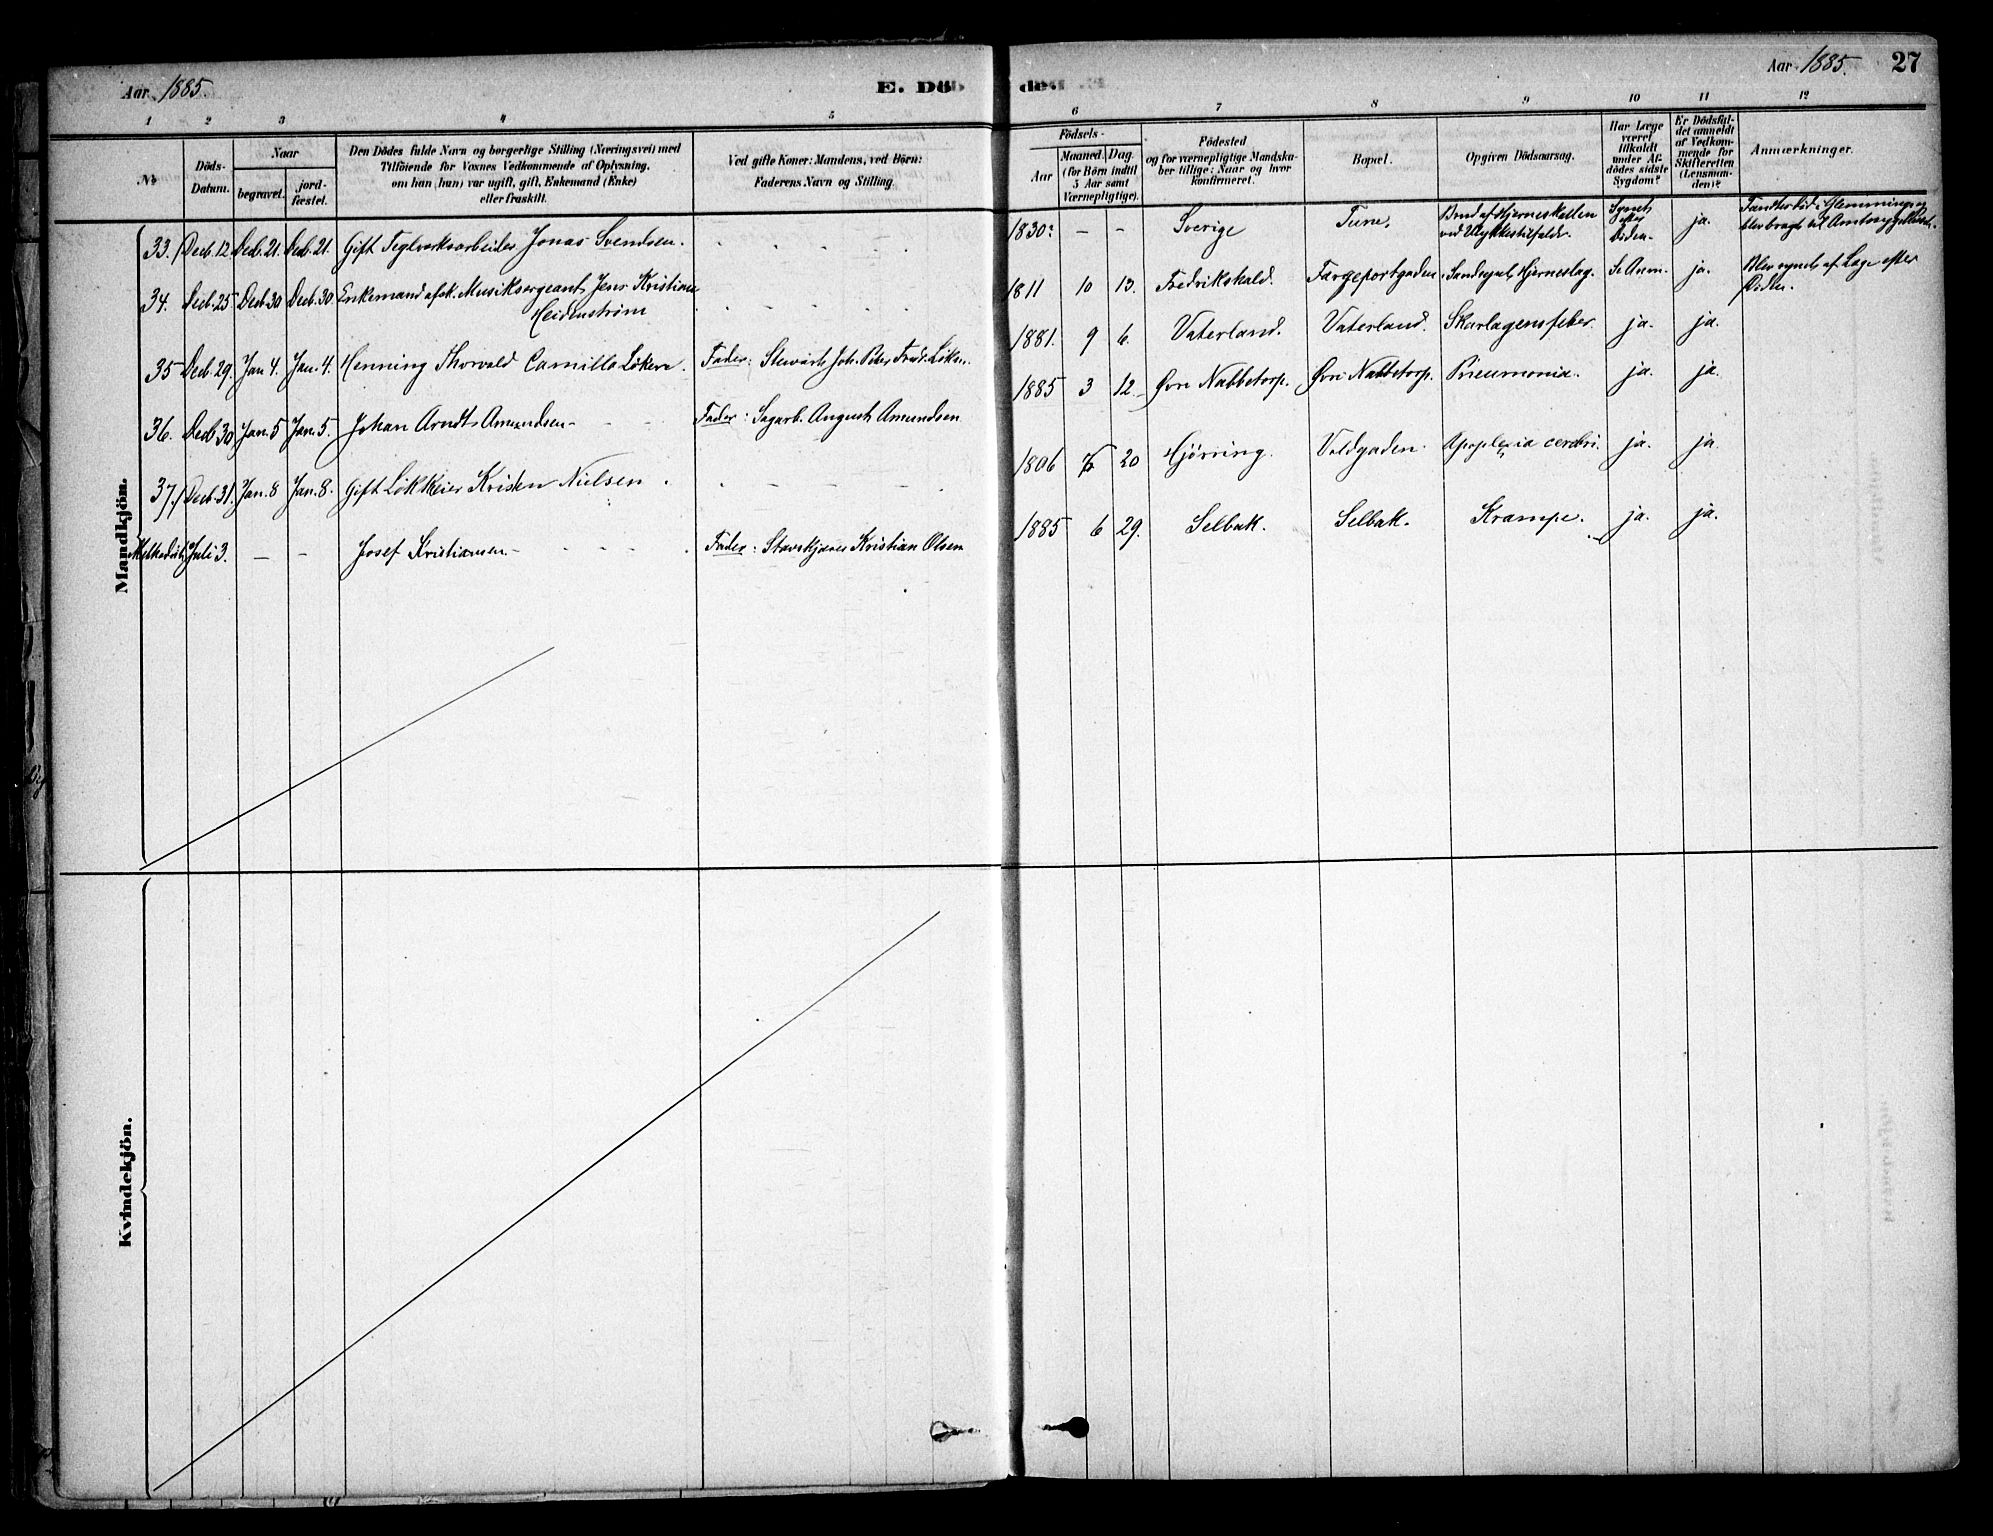 Aar 1885.
E. Döb
1 2 3 4 5
№
Döds-Datum.
Naar
begravet.
jord-fæstet.
Den Dödes fulde Navn og borgerlige Stilling (Næringsvei) med
Tilföiende for Voxnes Vedkommende af Oplysning,
om han (hun) var ugift, gift, Enkemand (Enke)
eller fraskilt.
Ved gifte Koner: Mandens, ved Börn:
Faderens Navn og Stilling.
Mandkjön.
33. Decb. 12 Decb. 21. Decb. 21. Gift Teglverksarbeider Jonas Svendsen.
34. Decb. 25 Decb 30 Decb. 30. Enkemand afsk. Musiksergeant Jens Kristian
Heidenstrøm
35 Decb. 29. Jan 4. Jan. 4. Henning Thorvald Camillo Løken. Fader: Stewart Joh. Peter Fredr. Løken.
36. Decb 30 Jan. 5 Jan. 5. Johan Arndt Amundsen Fader: Sagarb. August Amundsen
37. Decb. 31. Jan. 8 Jan. 8. Gift Løkkeier Kristen Nielsen.
Methodist Juli 3. — — Josef Kristiansen Fader: Kristian Olsen
Kvindekjön.
Aar 1885. 27
6 7 8 9 10 11 12
Födsels-
Aar
Maaned. Dag.
(for Börn indtil
5 Aar samt
Værnepligtige).
Födested
og for værnepligtige Mandska-
ber tillige: Naar og hvor
konfirmeret.
Bopæl.
Opgiven Dödsaarsag.
Har Læge
været
tilkaldt
under Af-
dödes sidste
Sygdom?
Er Dödsfal-
det anmeldt
af Vedkom-
mende for
Skifteretten
(Lensman-
den)?
Anmærkninger.
1830? — — Sverige Tune. Brud af Hjerneskallen
ved Ulykkestilfælde. Synet
efter
Døden. ja. i Glemminge og
blev bragt til Amtssygehuset.
1811 10 13. Fredrikshald. Færgeportgaden Sandsynl. Hjerneslag. Se Anm. ja. Blev synet af Læge efter
Døden.
1881. 9 6. Vaterland. Vaterland. Skarlagensfeber ja. ja.
1885 3 12. Øvre Nabbetorp. Øvre Nabbetorp. Pneumonia. ja. ja.
1806 20 Hjørring. Voldgaden. Apoplexia cerebri. ja. ja.
1885 6 29. Selbak. Selbak. Krampe. ja. ja.